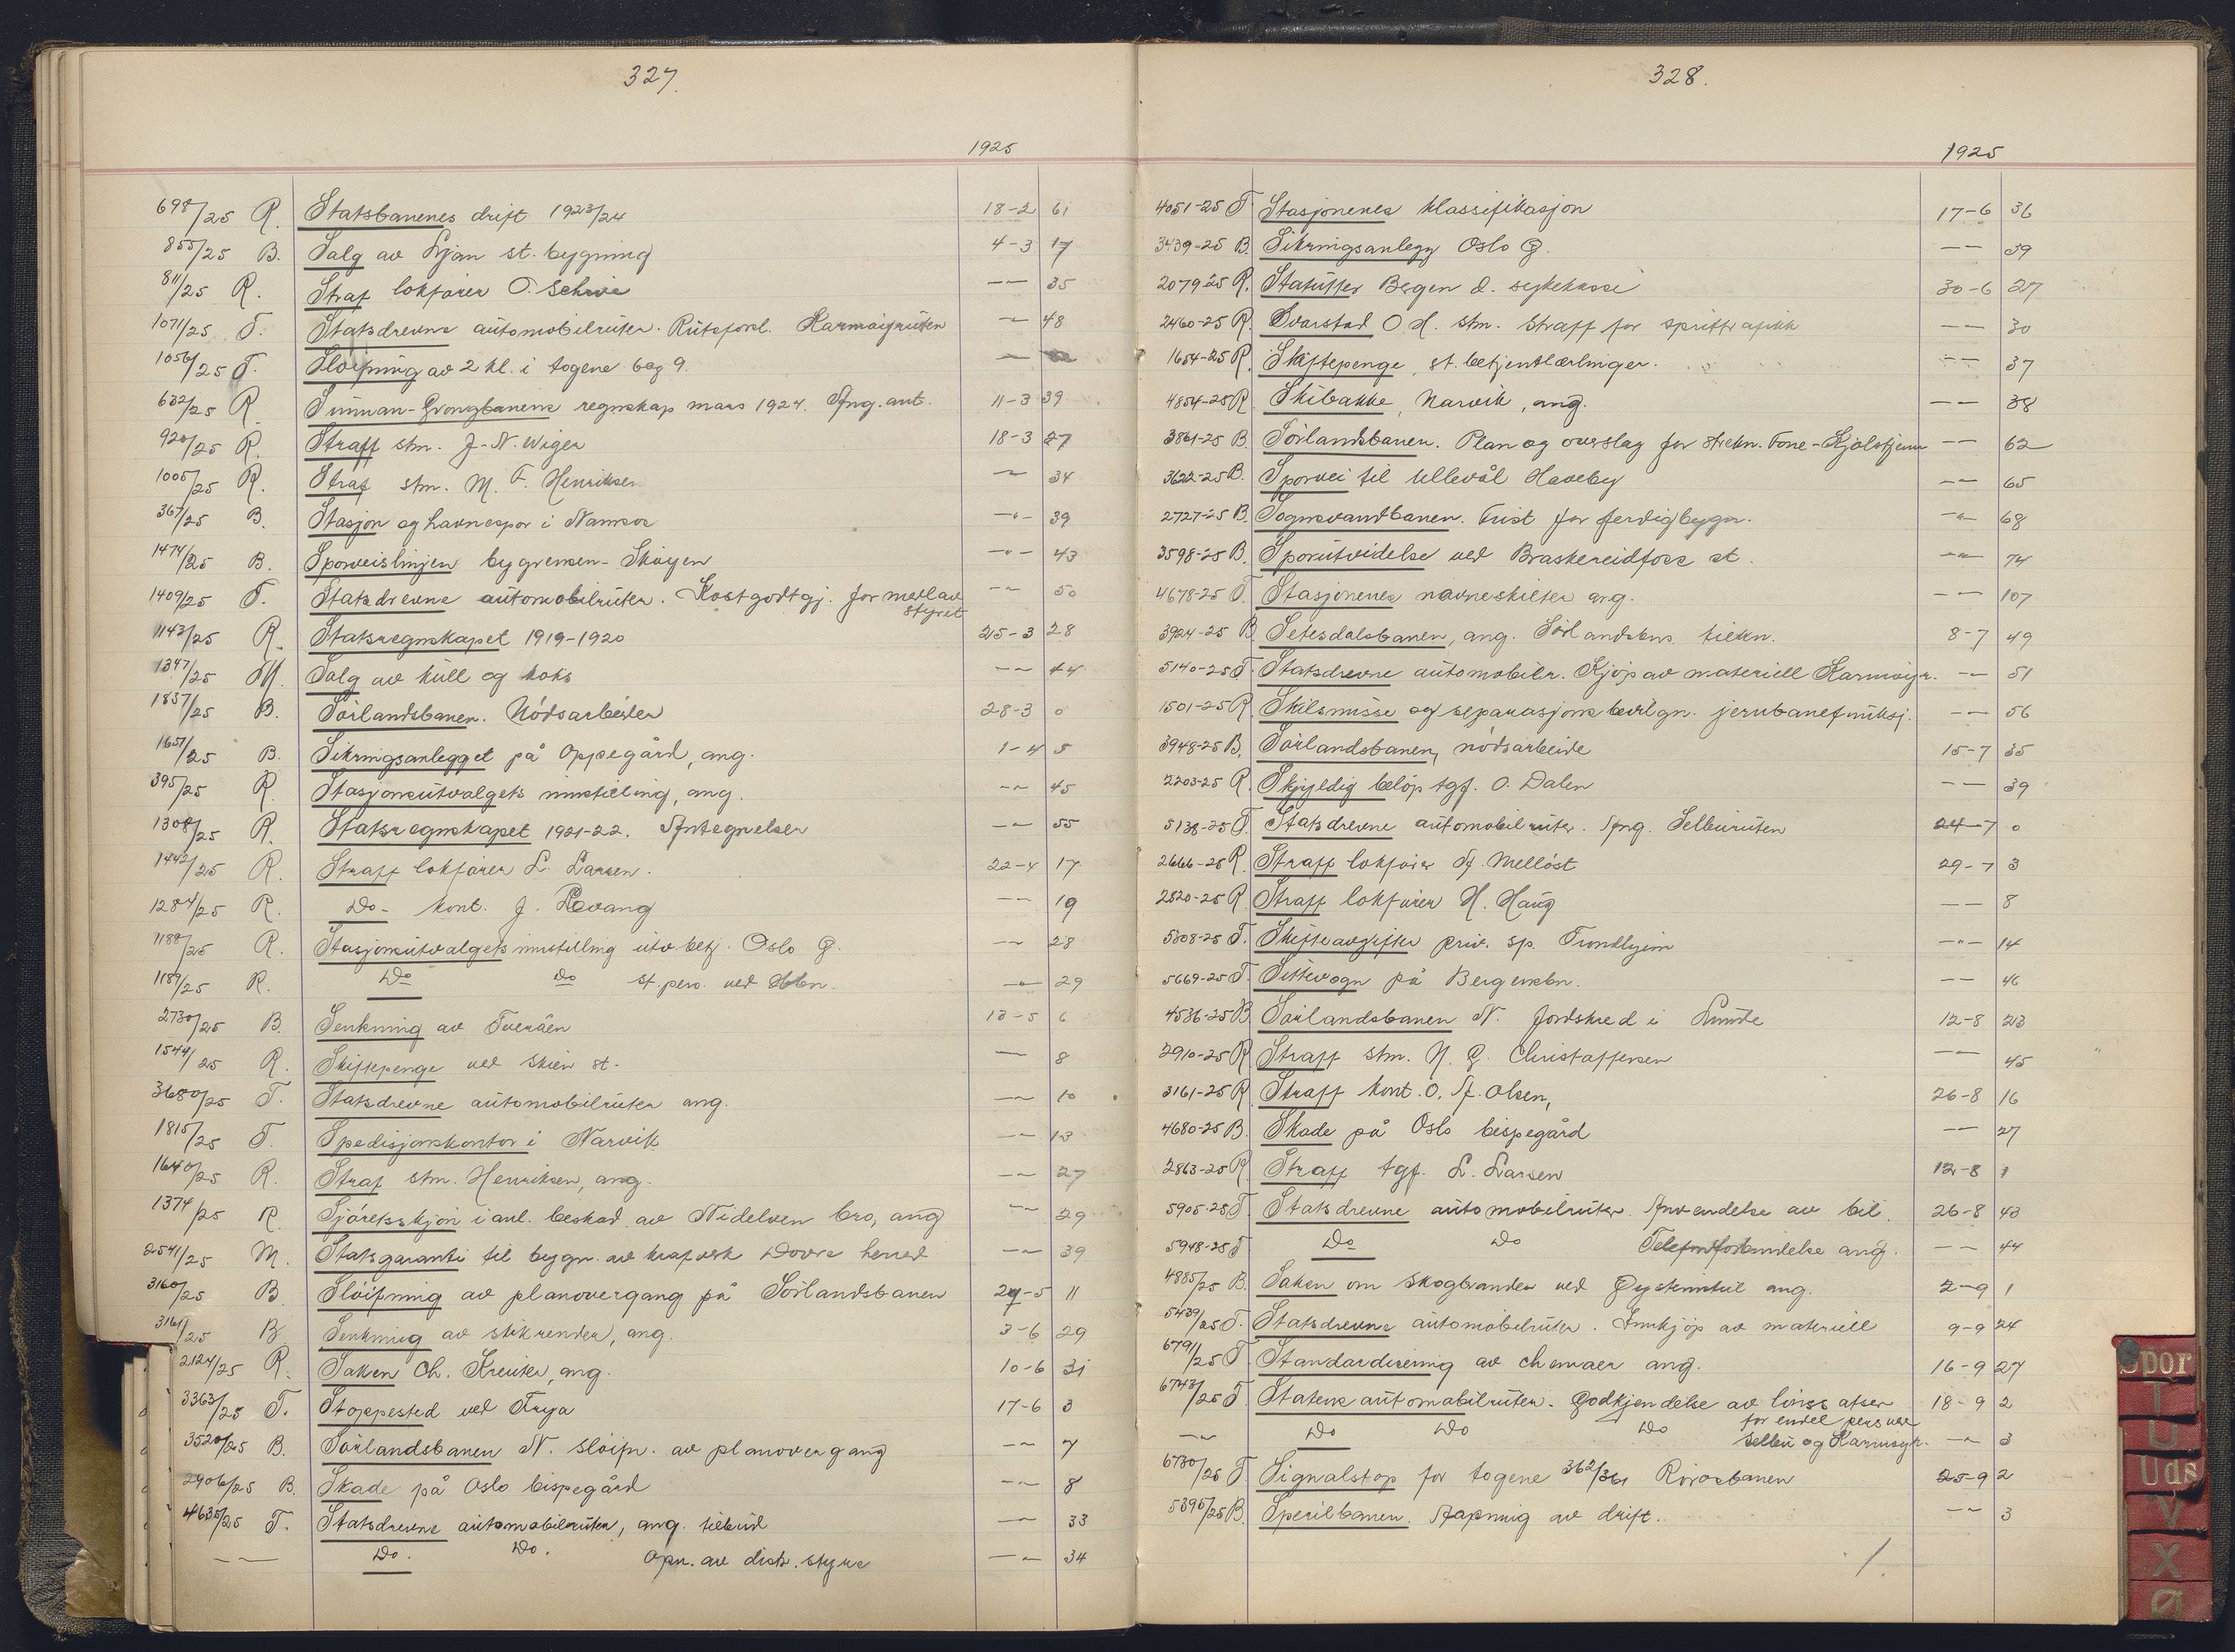 327.
1925
698/25 R. Statsbanenes drift 1923/24 18-2 61
855/25 B. Salg av Ljan st. bygning 4-3 17
811/25 R. Straf lokfører O. Schwie -〃- 35
1071/25 T. Statsdrevne automobilruter. Rutefork. Karmøyruten -〃- 48
1056/25 T. Sløifning av 2 kl. i togene 6 og 9. -〃-
632/25 R. Sunnan-Grongbanens regnskap mars 1924. Ang. ant. 11-3 39
920/25 R. Straff stm. J. N. Wiger 18-3 27
1005/25 R. Straf stm. M. F. Henriksen -〃- 34
367/25 B. Stasjon og havnespor i Namsos -〃- 39
1474/25 B. Sporveislinjen bygrensen - Skøyen -〃- 43
1409/25 T. Statsdrevne automobilruter. Kostgodtgj. for medl av -〃- 50
styret
1143/25 R. Statsregnskapet 1919-1920 25-3 28
1347/25 M. Salg av kull og koks -〃- 44
1857/25 B. Sørlandsbanen. Nødsarbeider 28-3 0
1657/25 B. Sikringsanlegget på Oppegård, ang. 1-4 5
395/25 R. Stasjonsutvalgets innstilling, ang. -〃- 45
1308/25 R. Statsregnskapet 1921-22. Antegnelser -〃- 55
1442/25 R. Straff lokfører L. Larsen. 22-4 17
1284/25 R. Do - kont. J. Levang -〃- 19
1188/25 R. Stasjonsutvalgets innstilling utv. betj. Oslo Ø. -〃- 28
1189/25 R. Do Do st. pers. ved Hbn. -〃- 29
2730/25 B. Senkning av Tveråen 13-5 6
1544/25 R. Skiftepenge ved Skien st. -〃- 8
3680/25 T. Statsdrevne automobilruter ang. -〃- 10
1815/25 T. Spedisjonskontor i Narvik -〃- 13
1640/25 R. Straf stm. Henriksen, ang. -〃- 27
1374/25 R. Sjøretsskjøn i anl. beskad. av Nidelven bro, ang -〃- 29
2541/25 M. Statsgaranti til bygn. av krafverk Dovre herred -〃- 39
3160/25 B. Sløifning av planovergang på Sørlandsbanen 29-5 11
3161/25 B. Senkning av stikrender, ang. 3-6 29
2124/25 R. Saken Ch. Kreuter, ang. 10-6 31
3363/25 T. Stoppested ved Frya 17-6 3
3520/25 B. Sørlandsbanen N. sløifn. av planovergang -〃- 7
2906/25 B. Skade på Oslo bispegård -〃- 8
4635/25 T. Statsdrevne automobilruter, ang. tilbud -〃- 33
-〃- Do. Do. Opn. av distr. styre -〃- 34
328.
1925
4051-25 T. Stasjonenes klassifikasjon 17-6 36
3439-25 B. Sikringsanlegg Oslo Ø. -〃- 39
2079-25 R. Statutter Bergen d. sykekasse 30-6 27
2460-25 R. Svarstad O. H. stm. Straff for sprittrafikk -〃- 30
1654-25 R. Skiftepenge, st. betjentlærlinger. -〃- 37
4854-25 R. Skibakke, Narvik, ang. -〃- 38
3861-25 B. Sørlandsbanen. Plan og overslag for strekn. Tone-Kjølstjenn -〃- 62
3622-25 B. Sporvei til Ullevål Haveby -〃- 65
2727-25 B. Sognsvandbanen. Frist for ferdigbygn. -〃- 68
3598-25 B. Sporutvidelse ved Braskereidfoss st. -〃- 74
4678-25 T. Stasjonenes navneskilter ang. -〃- 107
3924-25 B. Setesdalsbanen, ang. Sørlandsbns. tilkn. 8-7 49
5140-25 T. Statsdrevne automobilr. Kjøp av materiell Karmøyr. -〃- 51
1501-25 R. Skilsmisse og separasjonsbevilgn. jernbanefunksj. -〃- 56
3948-25 B. Sørlandsbanen, nødsarbeide 15-7 35
2203-25 R. Skyldig beløp tgf. O. Dalen -〃- 39
5138-25 T. Statsdrevne automobilruter. Ang. Selburuten 24-7 0
2666-25 R. Straff lokfører A. Melløst 29-7 3
2820-25 R. Straff lokfører H. Haug -〃- 8
5308-25 T. Skifteavgifter priv. sp. Trondhjem -〃- 14
5669-25 T. Sittevogn på Bergensbn. -〃- 46
4536-25 B. Sørlandsbanen N. Jordskred i Lunde 12-8 23
2910-25 R. Straff stm. N. G. Christoffersen -〃- 45
3161-25 R. Straff kont. O. A. Olsen, 26-8 16
4680-25 B. Skade på Oslo bispegård -〃- 27
2863-25 R. Straff tgf. L. Larsen 12-8 1
5905-25 T. Statsdrevne automobilruter. Anvendelse av bil. 26-8 43
5948-25 T Do Do Telefonforbindelse ang. -〃- 44
4885/25 B. Saken om skogbranden ved Øysteinstul ang. 2-9 1
5439/25 T. Statsdrevne automobilruter. Innkjøp av materiell 9-9 24
6791/25 T. Standardisering av skemaer ang. 16-9 27
6743/25 T. Statens automobilruter. Godkjendelse av lønssatser 18-9 2
for endel pers ved
-〃- Do Do Do Selbu og Karmøyr. -〃- 3
6730/25 T. Signalstop for togene 362/361 Rørosbanen 25-9 2
5395/25 B. Sperilbanen. Åpning av drift. -〃- 3
Spor
T
U
Uds
V
X
Ø